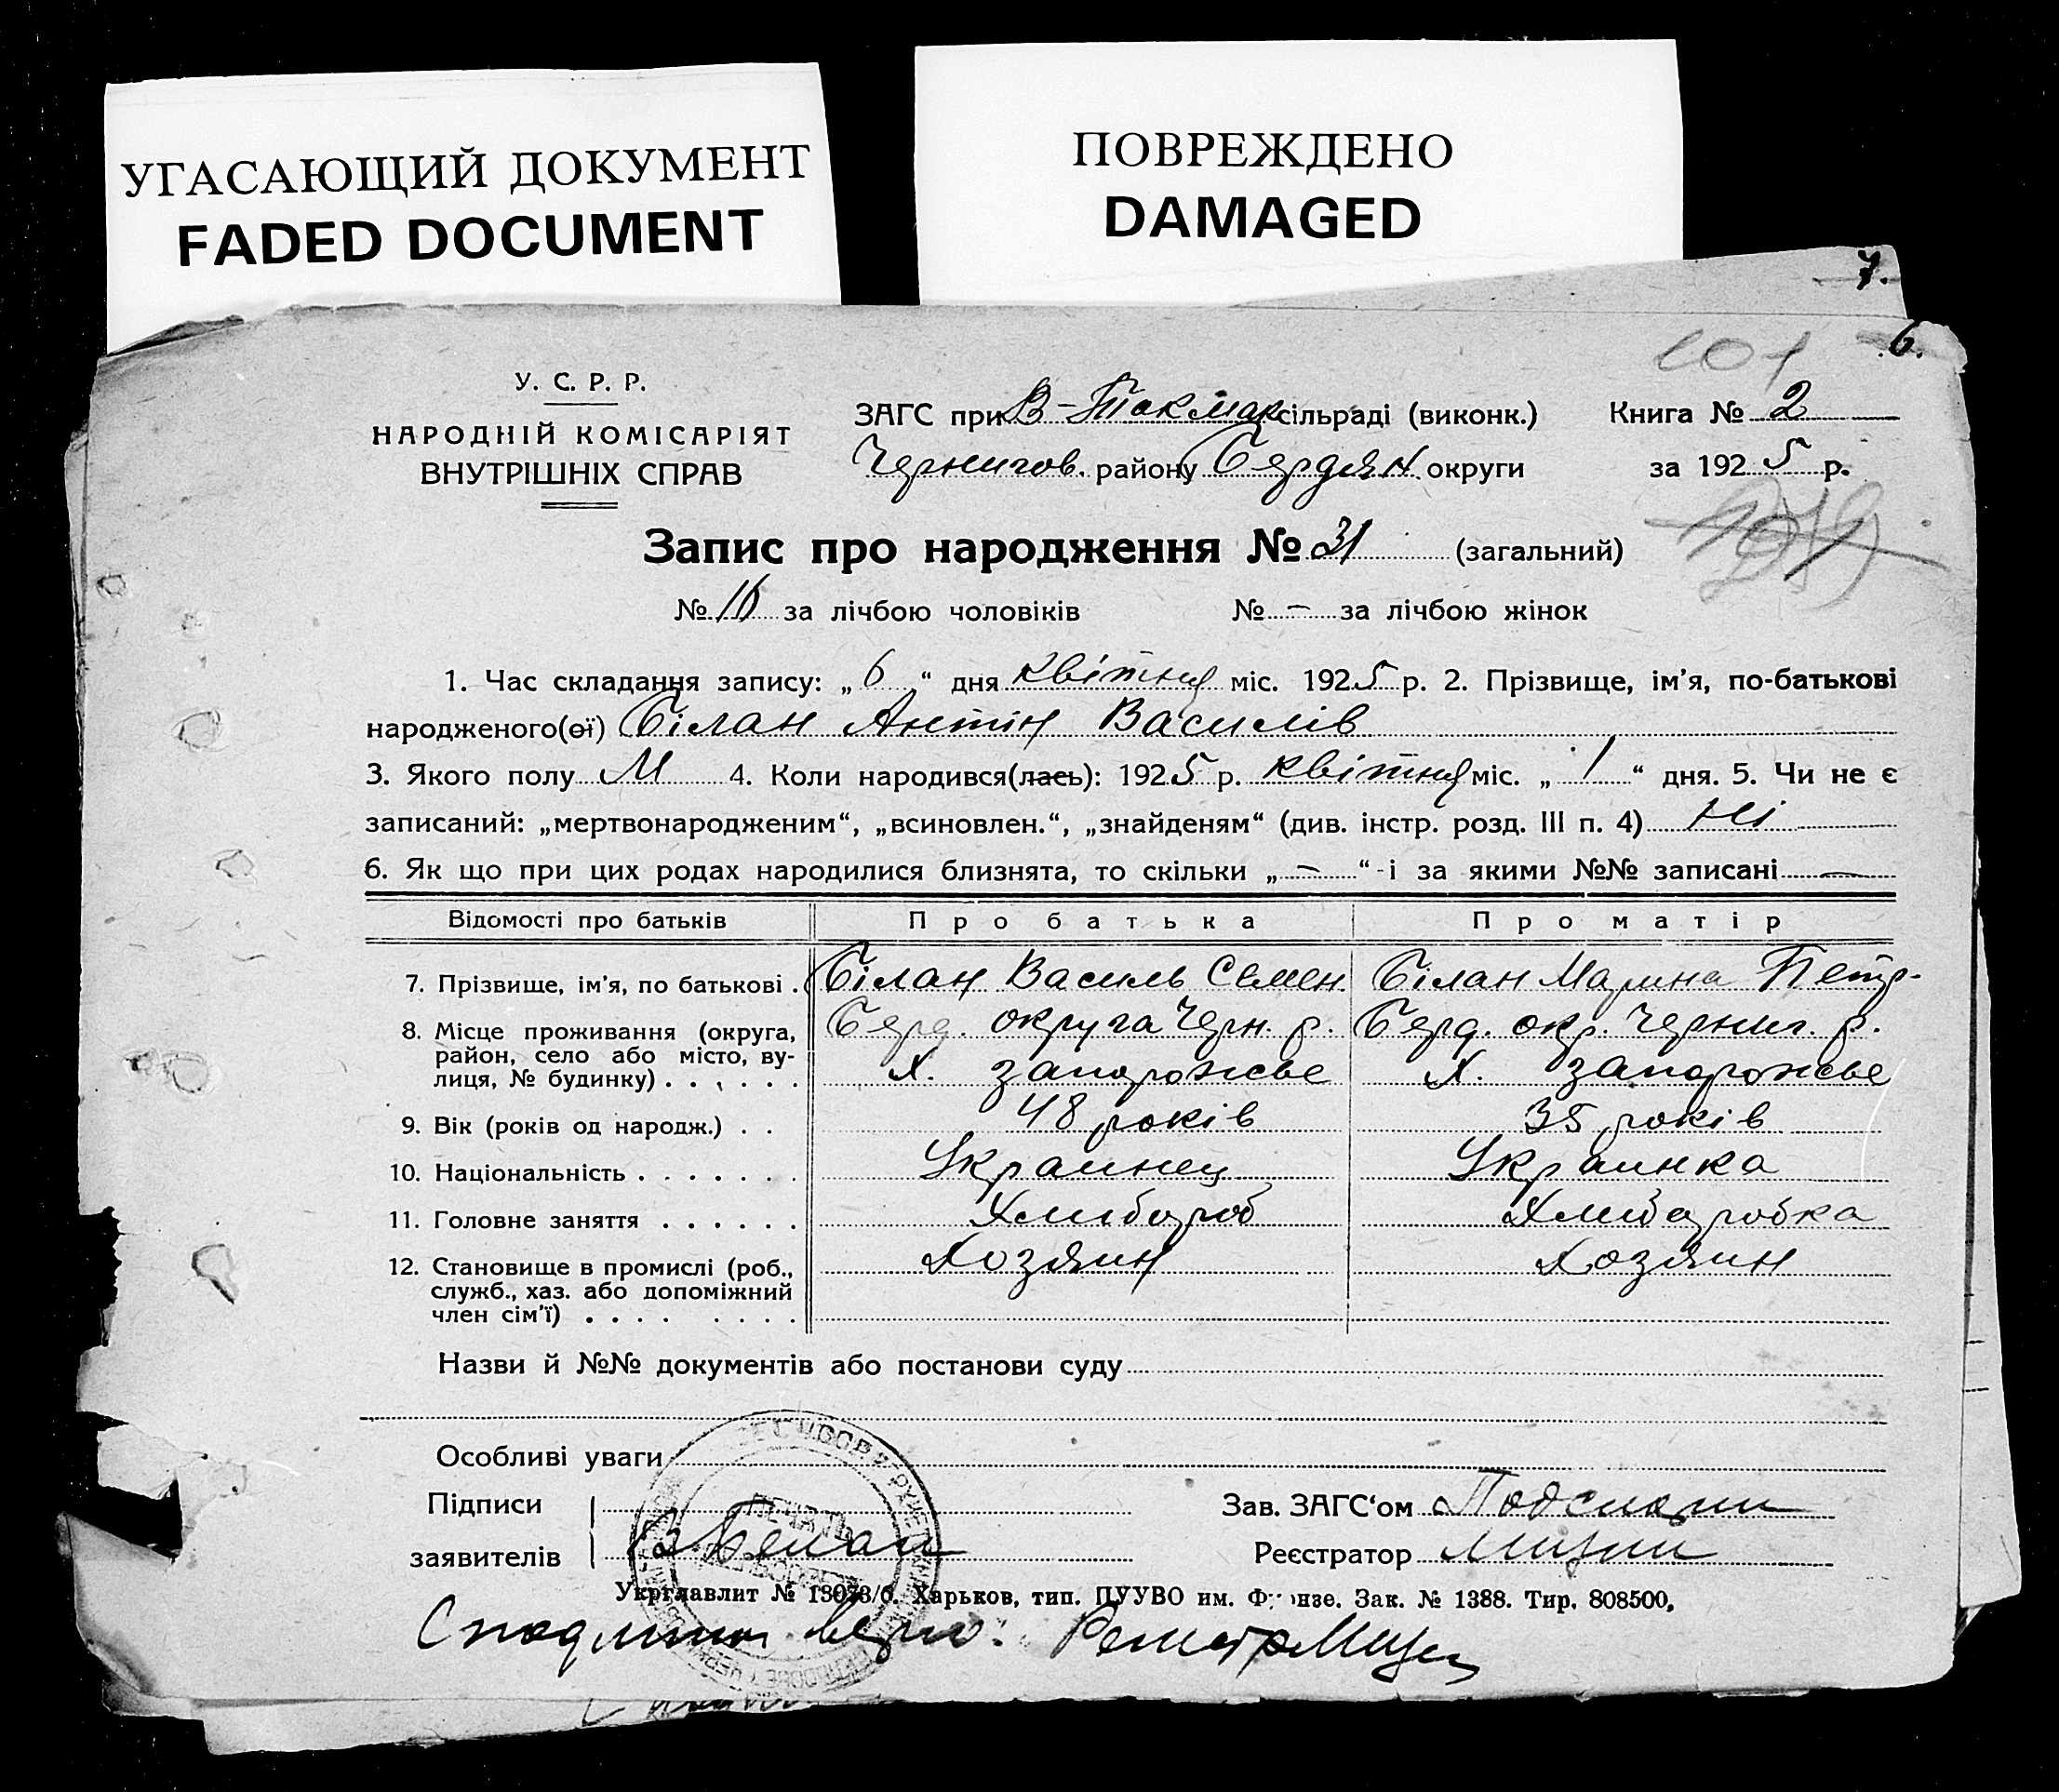 УГАСАЮЩИЙ ДОКУМЕНТ
FADED DOCUMENT
ПОВРЕЖДЕНО
DAMAGED
7.
6.
201
У. С. Р. Р.
НАРОДНІЙ КОМІСАРІЯТ
ВНУТРІШНІХ СПРАВ
ЗАГС при В-Токмак сільраді (виконк.) Книга № 2
Чернигов. району Бердян. округи за 1925 р.
Запис про народження № 31 (загальний)
№ 16 за лічбою чоловіків № – за лічбою жінок
1. Час складання запису: „6“ дня квітня міс. 1925 р. 2. Прізвище, ім'я, по-батькові
народженого(ої) Білан Антін Василів
3. Якого полу М 4. Коли народився(лась): 1925 р. квітня міс. „1“ дня. 5. Чи не є
записаний: „мертвонародженим“, „всиновлен.“, „знайденям“ (див. інстр. розд. III п. 4) Ні
6. Як що при цих родах народилися близнята, то скільки „–“ і за якими №№ записані —
Відомості про батьків Про батька Про матір
7. Прізвище, ім'я, по батькові . Білан Василь Семен Білан Марина Петр-
8. Місце проживання (округа, Берд. округа Черн. р. Берд. окр. Черниг. р.
район, село або місто, ву-
лиця, № будинку) . . . . . . Х. Запорожсье Х. Запорожсье
9. Вік (років од народж.) . . 48 років 35 років
10. Національність . . . . . . . Украинец Украинка
11. Головне заняття . . . . . . Хлибороб Хлиборобка
12. Становище в промислі (роб., Хозяин Хозяин
служб., хаз. або допоміжний
член сім'ї) . . . . . . . .
Назви й №№ документів або постанови суду
Особливі уваги
Підписи Зав. ЗАГС'ом
заявителів В Белан Реєстратор
ПЕЧАТЬ
Укрглавлит № 13073/б. Харьков, тип. ПУУВО им. Фрунзе. Зак. № 1388. Тир. 808500,
С подлином верно: